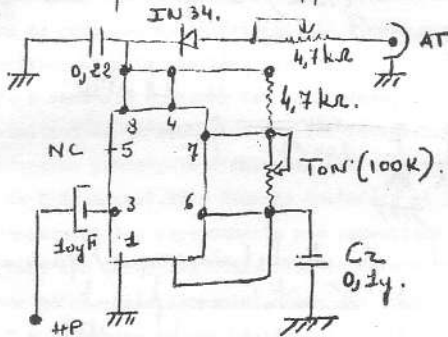 IN34.
AT
4,7kΩ
0,22
4,7kΩ.
8
4
NC
5
7
TON (100K)
3
6
10µF
1
C2
0,1µ.
HP